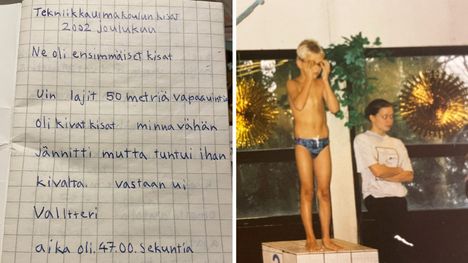 Tekniikkauimakoulun kisat
2002 joulukuu
Ne oli ensimmäiset kisat
Uin lajit 50 metriä vapaauintia
oli kivat kisat minua vähän
jännitti mutta tuntui ihan
kivalta. vastaan ui
Valtteri
aika oli. 47.00. sekuntia